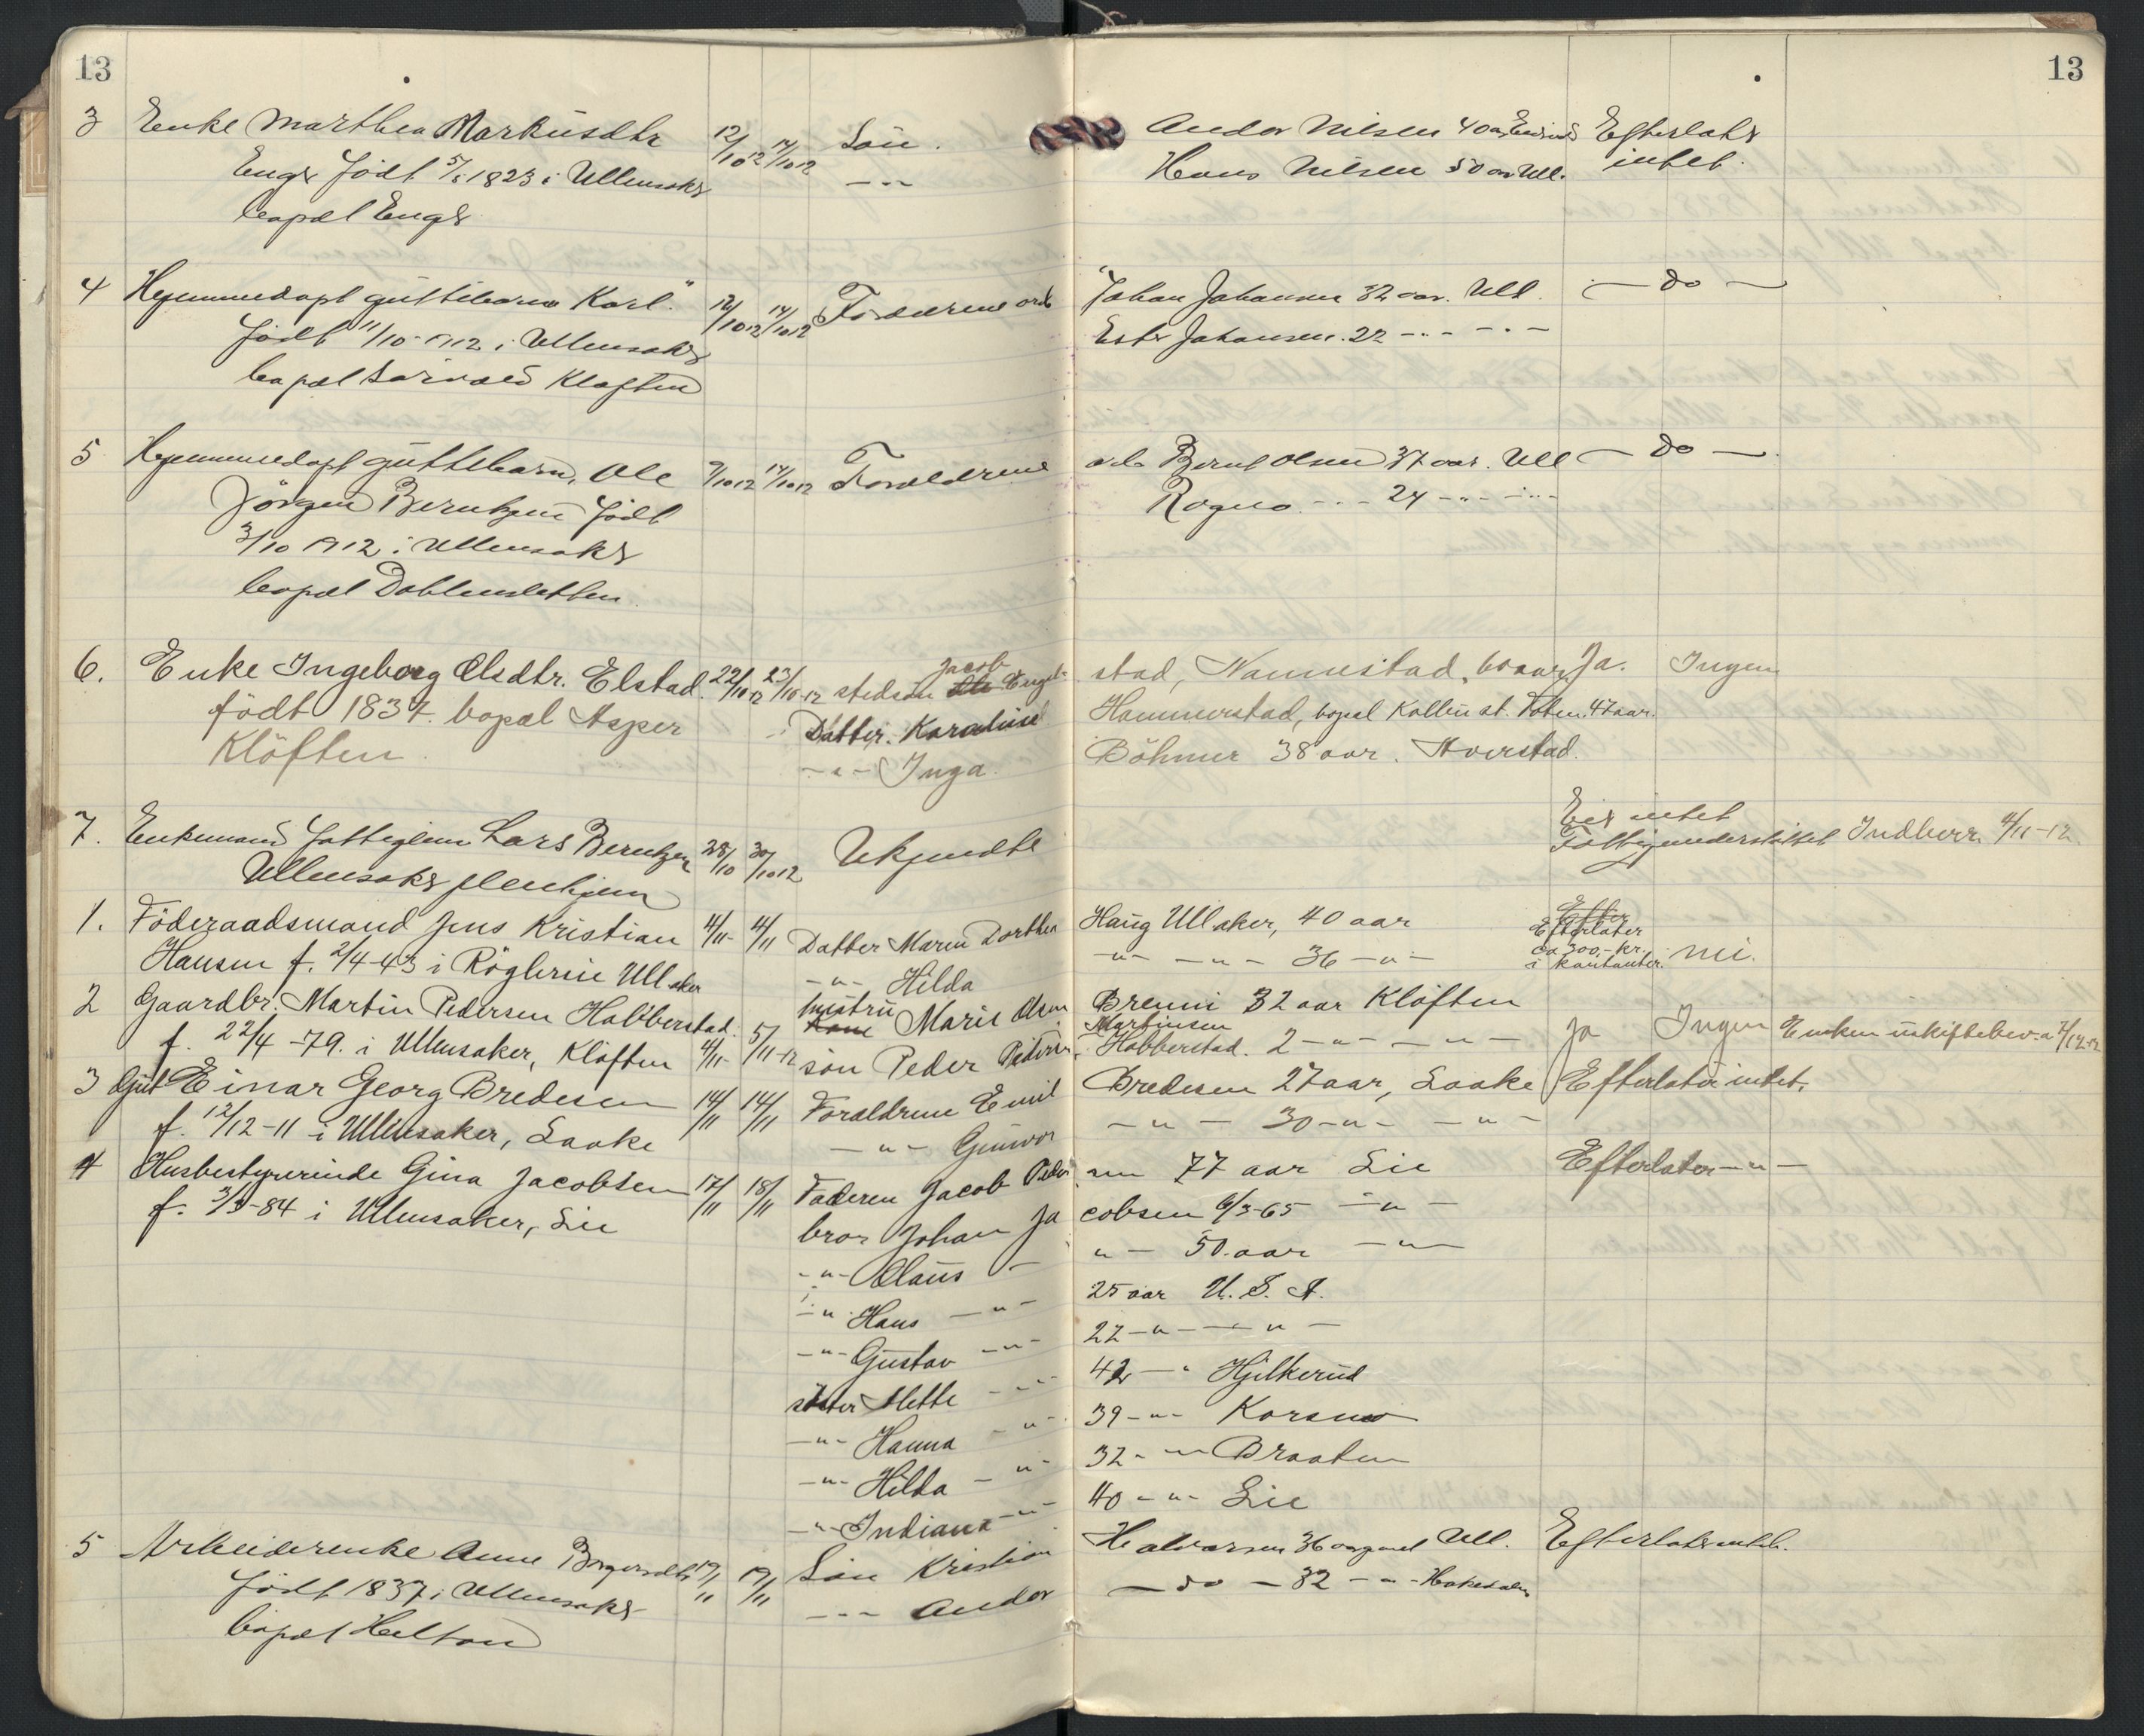 13
13
3 Enke Marthea Markusdtr 12/10 12 14/10 12 Sön. Andor Nilsen 40 aar Efterlater
Enger födt 5/5 1823 i Ullensaker -"- Hans Nilsen 50 aar Ull. intet.
bopæl Enger
4 Hjemmedøpt guttebarn "Karl" 12/10 12 14/10 12 Forældrene arb Johan Johansen 32 aar. Ull. — do —
födt 11/10-1912 i Ullensaker Ester Johansen. 22 -"- -"-
bopæl Kløften
5 Hjemmedøpt guttebarn, Ole 9/10 12 14/10 12 Forældrene arb Bernt Olsen 37 aar. Ull — do —
Jörgen Berntzen födt Ragna -"- 24 -"- -"-
3/10 1912 i Ullensaker
bopæl Dahlensletten
6. Enke Ingeborg Olsdtr. Elstad. 22/10-12 23/10-12 stedsön Jacob Engel- stad, Nannestad, 60 aar Ja. Ingen
födt 1834. bopæl Asper Datter. Karoline Hammerstad, bopæl Kollbu st. Toten. 47 aar.
Klöften. -"- Inga Böhmer 38 aar. Averstad.
7. Enkemand Fattiglem Lars Berntzen 28/10 30/10 12 Ukjendte Eier intet
Ullensaker pleiehjem Fattigunderstöttet Indberr. 4/11-12.
1. Föderaadsmand Jens Kristian 4/11- 4/11 Datter Maren Dorthea Haug Ullsaker, 40 aar Efter
Efterlater
Hansen f. 2/4-43 i Röglerie Ullsaker -"- Hilda -"- -"- 36 -"- ca 300,- kr. i kontanter. nei.
2 Gaardbr. Martin Pedersen Habberstad. 4/11- 5/11-12 hustru Kone Marie Olsen Brenni 32 aar Klöften
f. 22/4-79. i Ullensaker, Klöften sön Peder Pedersen Martinsen Habberstad. 2 -"- -"- Ja Ingen Enken uskiftebev. a 7/12-12
3 Gut Einar Georg Bredesen 14/11 14/11 Forældrene Emil Bredesen 27 aar, Laake Efterlater intet.
f. 12/12-11 i Ullensaker, Laake -"- Gunvor -"- 30 -"- -"-
4 Husbestyrerinde Gina Jacobsen 17/11 18/11 Faderen Jacob Peder sen 77 aar Lie Efterlater -"-
f. 3/3-84 i Ullensaker, Lie bror Johan Ja cobsen 6/3-65 -"-
-"- Claus - "- 50. aar -"-
-"- Hans -"- 25 aar U. S. A.
-"- Gustav -"- 22 -"- -"-
söster Mette -"- 42 -"- Hjelkerud
-"- Hanna -"- 39 -"- Korsmo
-"- Hilda -"- 32 -"- Braaten
-"- Indiana -"- 40 -"- Lie
5 Arbeiderenke Anne Borgersdtr 19/11 19/11 Sön Kristian Halvorsen 36 aar Ull. Efterlater intet.
födt 1837 i Ullensaker -"- Andor — do — 32 -"- Hakedalen
bopæl Heltorn